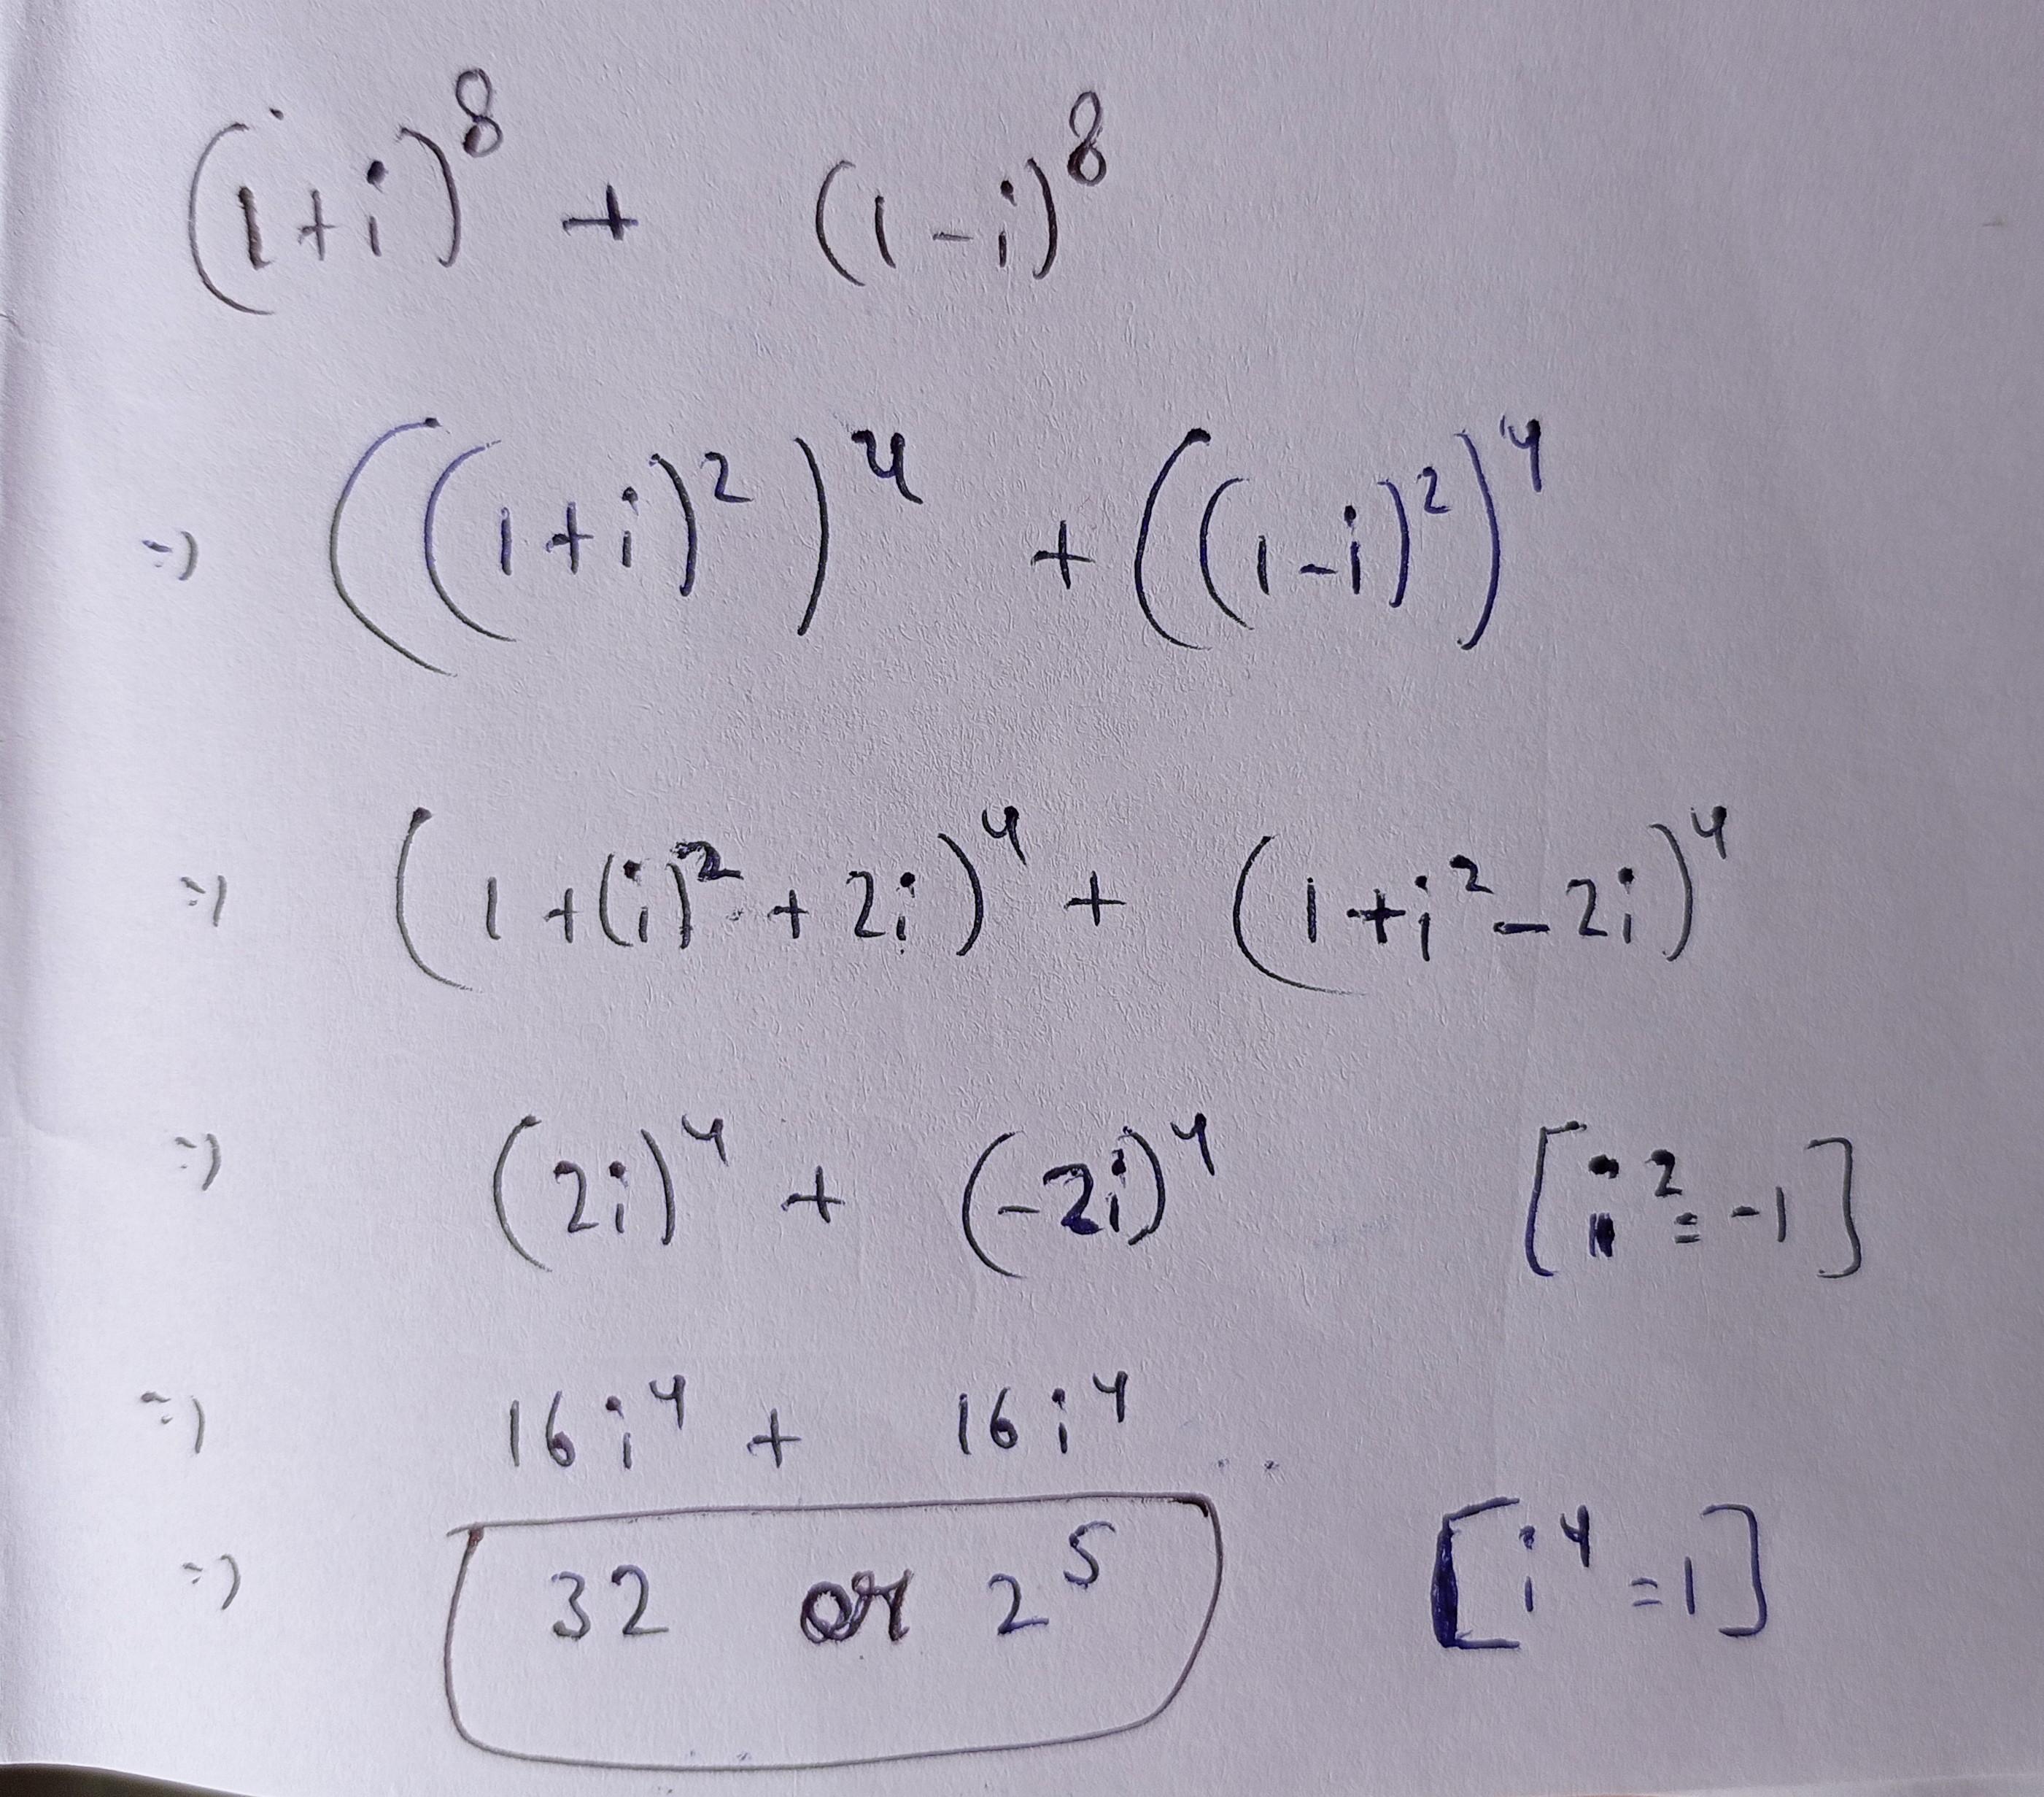 (1+i)⁸ + (1-i)⁸
⇒ ((1+i)²)⁴ + ((1-i)²)⁴
⇒ (1+(i)²+2i)⁴ + (1+i²-2i)⁴
⇒ (2i)⁴ + (-2i)⁴ [i²=-1]
⇒ 16i⁴ + 16i⁴
⇒ 32 or 2⁵ [i⁴=1]